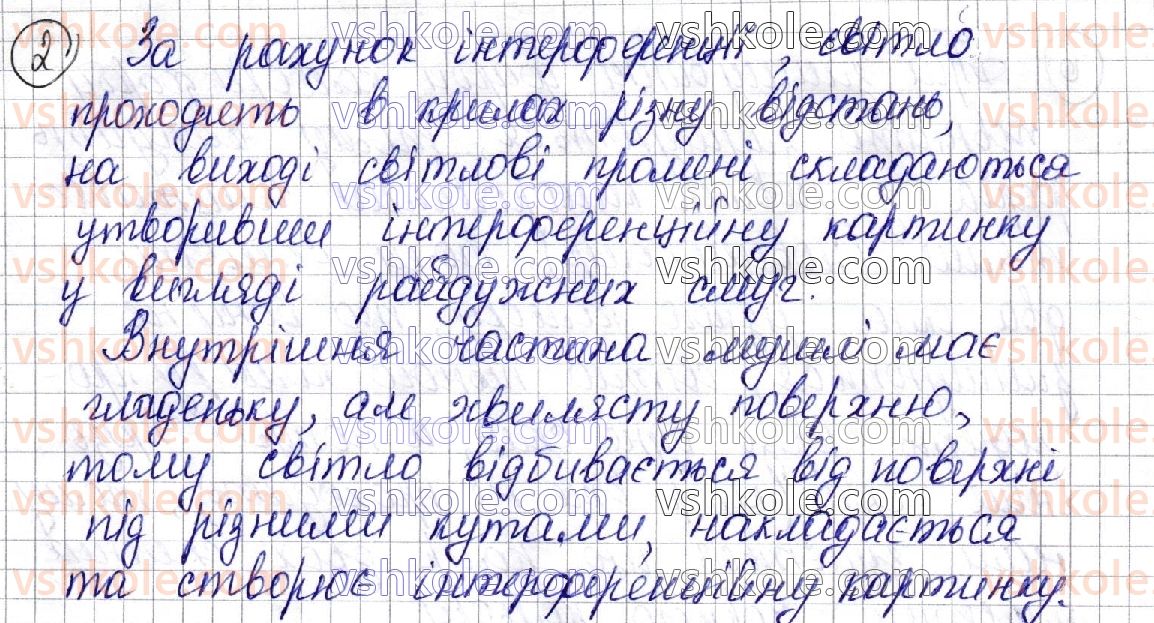 2) За рахунок інтерференції, світло
проходить в крилах різну відстань,
на виході світлові промені складаються
утворивши інтерференційну картинку
у вигляді райдужних смуг.
Внутрішня частина мушлі має
гладеньку, але хвилясту поверхню,
тому світло відбивається від поверхні
під різними кутами, накладається
та створює інтерференційну картинку.
vshkole.com